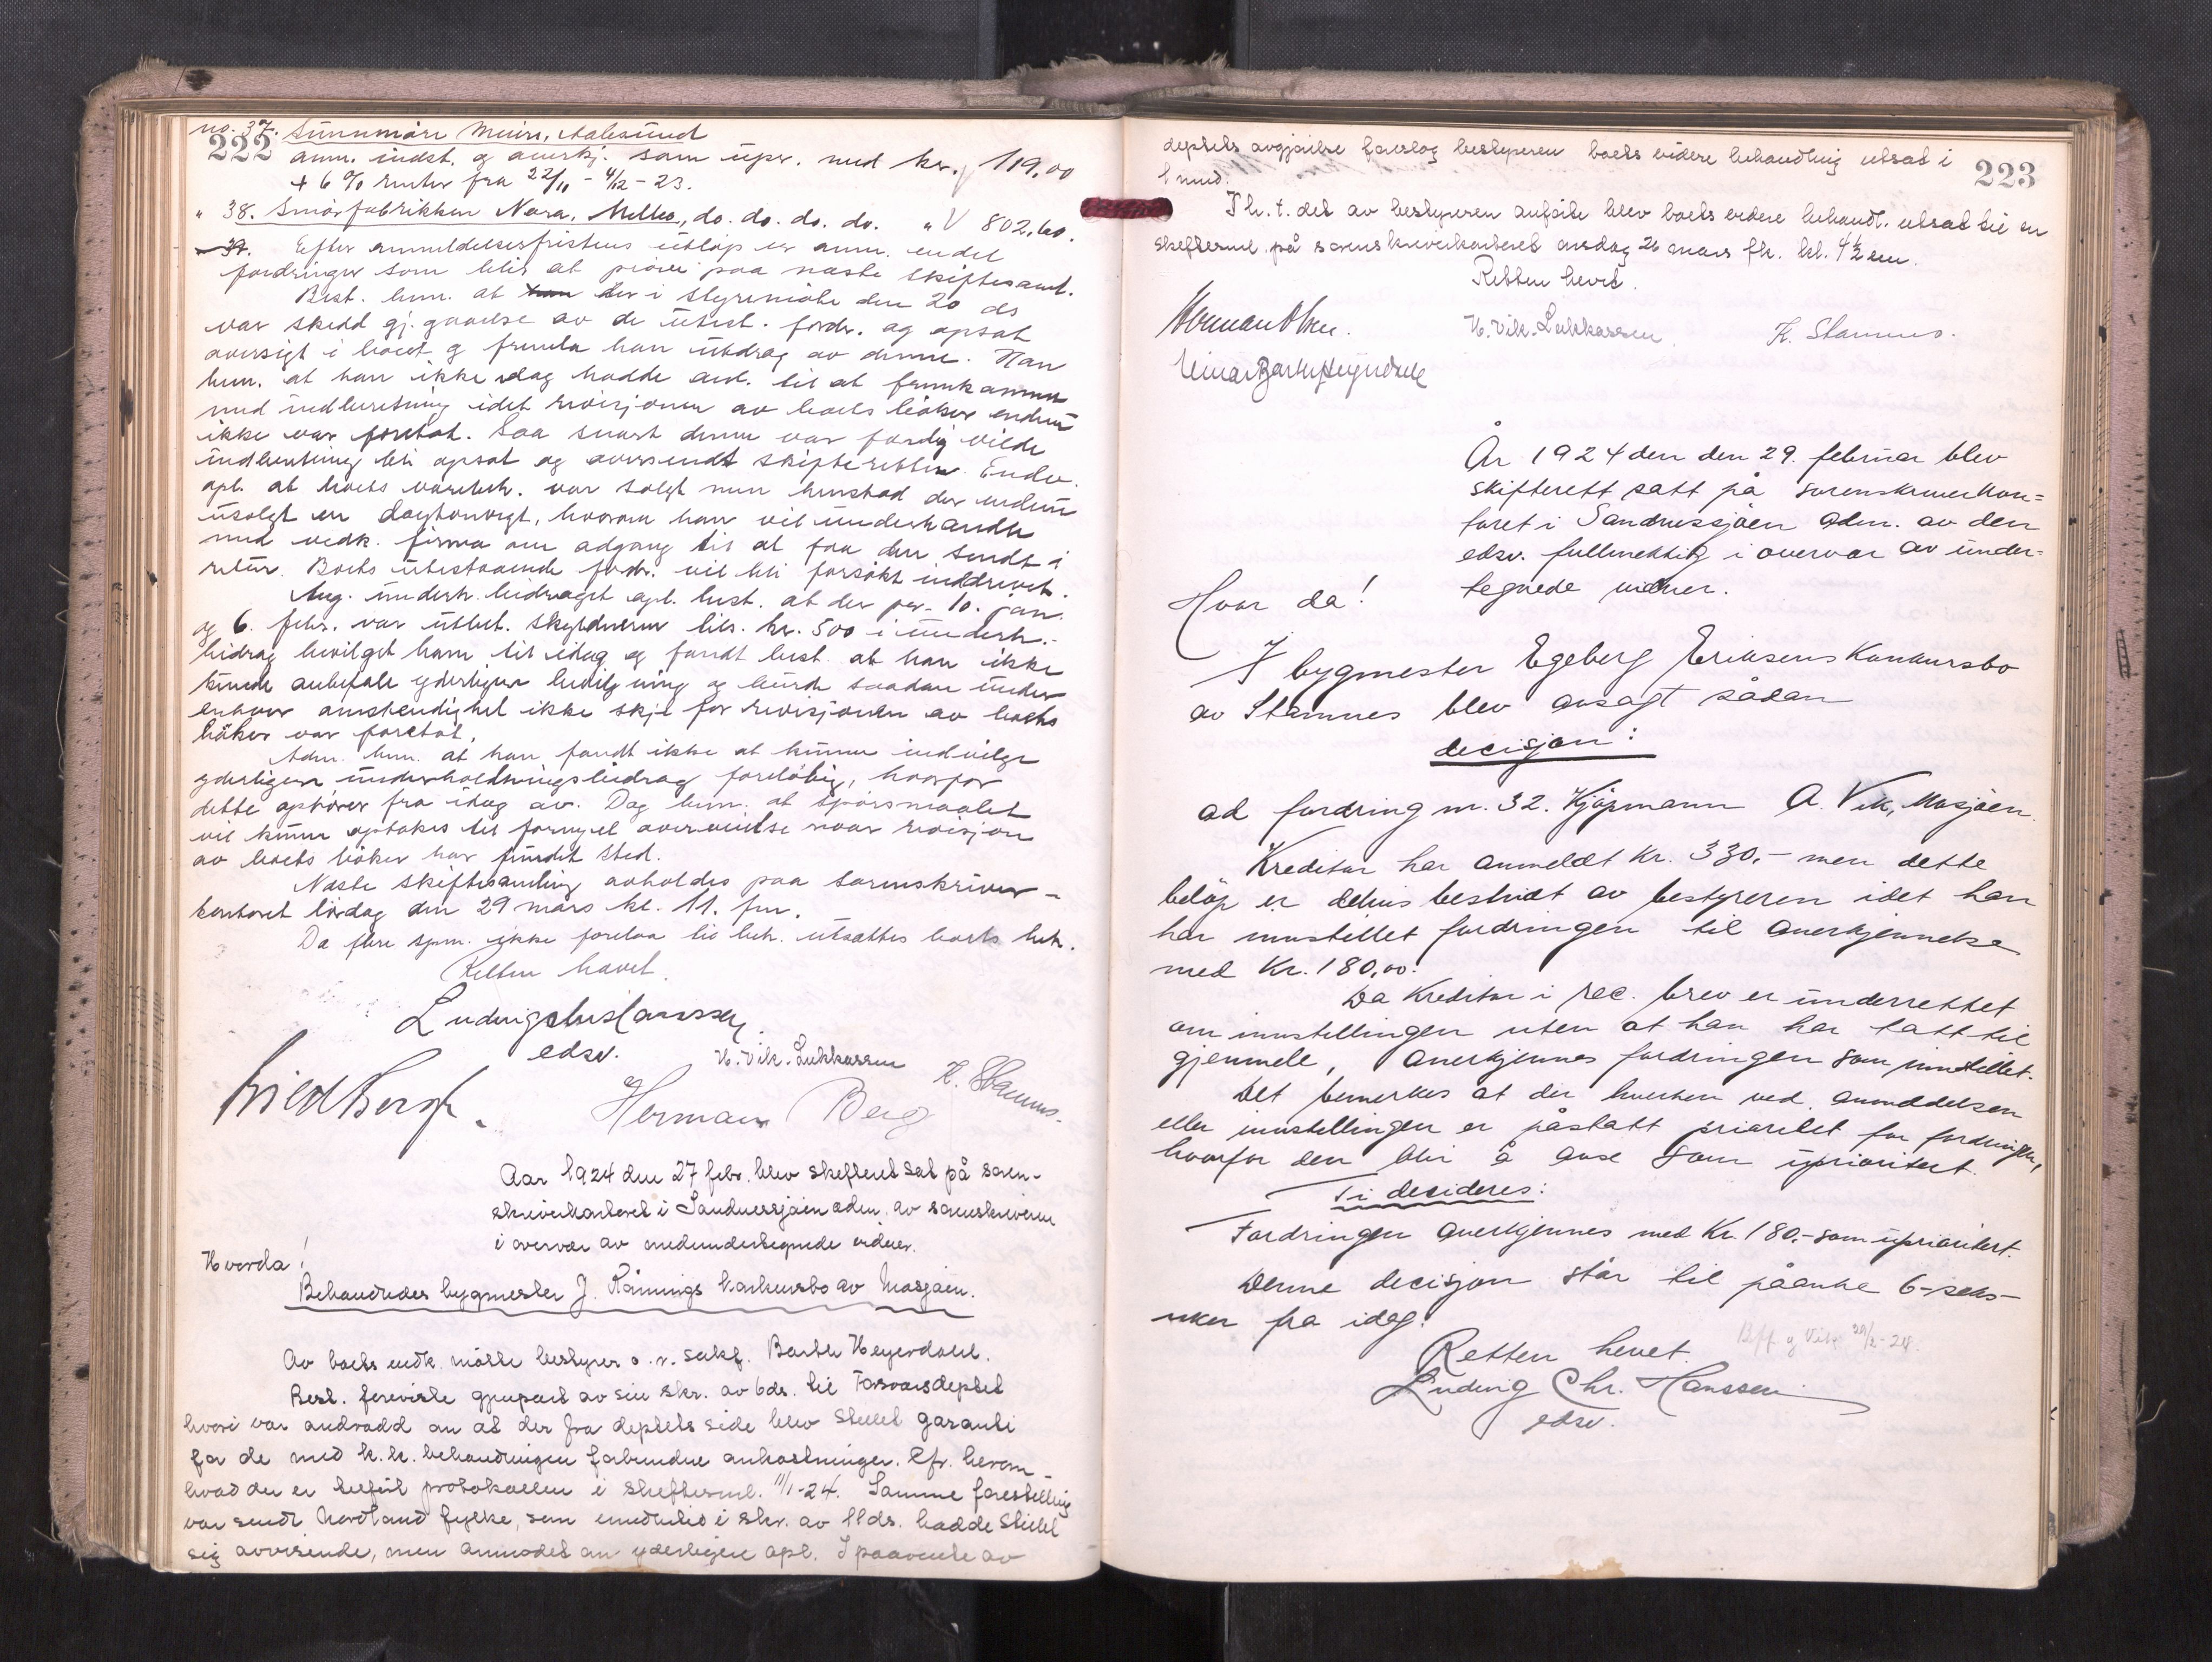 222
no. 37. Sunnmöre Meieri, Aalesund
anm. indst. og anerkj. som upr. med kr. 119,00
+ 6 % renter fra 22/11 - 4/12 - 23.
" 38. Smörfabrikken Nora, Melbo, do. do. do. do. " 802,60.
39. Efter anmeldelsesfristens utlöp er anm. endel
fordringer som blir at pröve paa næste skiftesaml.
Best. bem. at han der i styremöte den 20 ds
var skedd gj.gaaelse av de utest. fordr. og opsat
oversigt i boet og fremla han utdrag av denne. Han
bem. at han ikke idag hadde anl. til at fremkomme
med indberetning idet revisjonen av boets böker endnu
ikke var foretat. Saa snart denne var færdig vilde
indberetning bli opsat og oversendt skifteretten. Endv.
opl. at boets varebeh. var solgt men henstod der endnu
usolgt en , hvorom han vil underhandle
med vedk. firma om adgang til at faa den sendt i
retur. Boets utestaaende fordr. vil bli forsökt inddrevet.
Ang. underh.bidraget opl. best. at der pr. 10. jan.
og 6. febr. var utbet. skyldneren tils. kr. 500 i underh.-
bidrag bevilget ham til idag og fandt best. at han ikke
kunde anbefale yderligere bevilgning og burde saadan under
enhver omstendighet ikke skje för revisjonen av boets
böker var foretat.
Adm. bem. at han fandt ikke at kunne indvilge
yderligere underholdningsbidrag forelöbig, hvorfor
dette ophörer fra idag av. Dog bem. at spörsmaalet
vil kunne optokes til fornyet overveielse naar revisjon
av boets böker har fundet sted.
Næste skiftesamling avholdes paa sorenskriver-
kontoret lördag den 29 mars kl. 11. fm.
Da flere spm. ikke forelaa til beh. utsattes boets beh.
Retten hævet.
Ludvig Chr. Hanssen
edsv.
H. Vik-Lukkassen
K. Stamnes.
Herman Berg
Aar 1924 den 27 febr. blev skifteret sat på soren-
skriverkontoret i Sandnessjöen adm. av sorenskriveren
i overvær av medundertegnede vidner.
Hvorda!
Behandledes bygmester J. Rönnings konkursbo av Mosjöen.
Av boets vedk. mötte bestyrer o.r. sakf. Barth Heyerdahl.
Best. foreviste gjenpart av sin skr. av 6ds. til Forsvarsdeptet
hvori var androdd om at der fra deptets side blev stillet garanti
for de med k.b. behandlingen forbundne omkostninger. Cfr. herom-
hvad der er tilfört protokollen i skiftesml. 11/1-24. Samme forestilling
var sendt Nordland fylke, som imidlertid i skr. av 11ds. hadde stillet
sig avvisende, men anmodet om yderligere opl. I paavente av
223
deptets avgjörelse foreslog bestyreren boets videre behandling utsat i
1 mnd.
I h.t. det av bestyreren anförte blev boets videre behandl. utsat til en
skiftesml. på sorenskriverkontoret onsdag 26 mars fk. kl. 4½ em.
Retten hevet.
Herman Olsen.
H. Vik-Lukkassen.
K. Stamnes.
Einar Barth Heyerdahl
År 1924 den den 29. februar blev
skifterett satt på sorenskriverkon=
toret i Sandnessjöen adm. av den
edsv. fullmektig i overvær av under=
tegnede vidner.
Hvor da!
I bygmester Egeberg Eriksens Konkursbo
av Stamnes blev avsagt sådan
decisjon:
ad fordring nr. 32. Kjöpmann A. Vik, Mosjöen.
Kreditor har anmeldt kr. 330,- men dette
belöp er delvis bestridt av bestyreren idet han
har innstillet fordringen til anerkjennelse
med kr. 180,00.
Da Kreditor i rec. brev er underrettet
om innstillingen uten at han har tatt til
gjenmele, anerkjennes fordringen som innstillet.
Det bemerkes at der hverken ved anmeldelsen
eller innstillingen er påstått prioritet for fordringen,
hvorfor den blir å anse som uprioritert.
Ti decideres:
Fordringen anerkjennes med Kr. 180.- som uprioritert.
Denne decisjon står til påanke 6-seks-
uker fra idag.
Retten hevet.
Ludvig Chr. Hanssen
edsv.